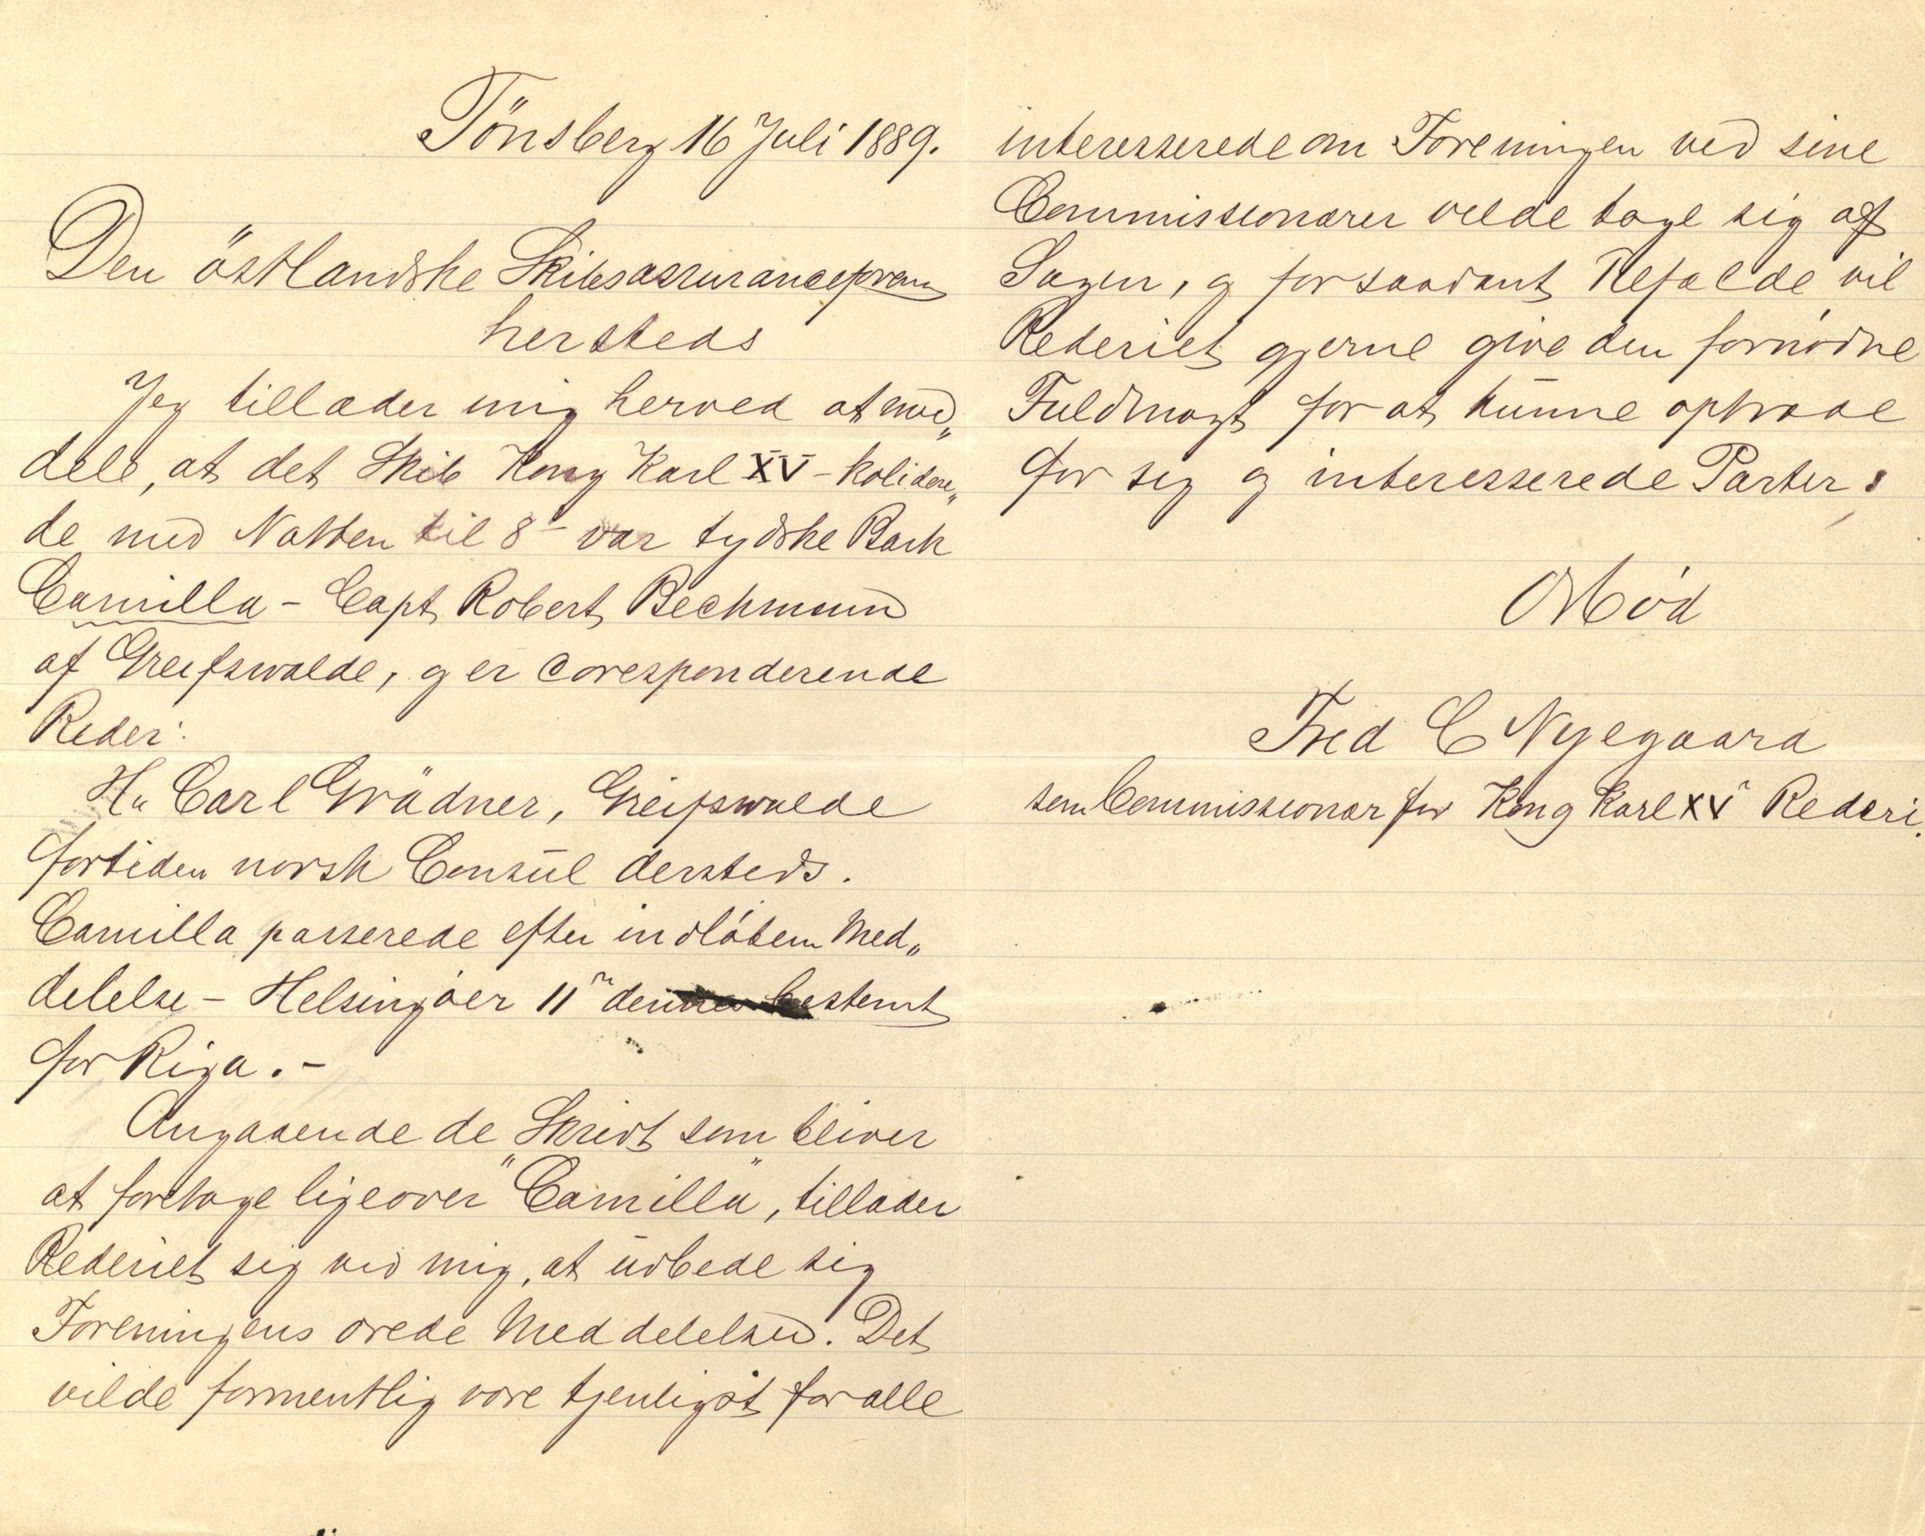 Tönsberg 16 Juli 1889.
Den östlandske Skibsassuranceforen
hersteds
Jeg tillader mig herved at med„
dele, at det Skib Kong Karl XV – kolidere„
de med Natten til 8– var tydske Bark
Camilla – Capt Robert Bechmann
af Greifswalde, og er Coresponderende
Reder:
Hr Carl Grädner, Greifswalde
fortiden norsk Consul dersteds.
Camilla passerede efter indløben Med„
delelse – Helsingøer 11te dennes bestemt
for Riga. –
Angaaende de Skridt som bliver
at foretage ligeover "Camilla", tillader
Rederiet sig ved mig, at udbede sig
Foreningens ærede Meddelelser. Det
vilde formentlig være tjenligst for alle
interesserede om Foreningen ved sine
Commissionærer vilde tage sig af
Sagen, og for saadant Tilfælde vil
Rederiet gjerne give den fornødne
Fuldmagt for at kunne optræde
for sig og interesserede Parter.
Fred C Nyegaard
som Commissionær for Kong Karl XVs Rederi.